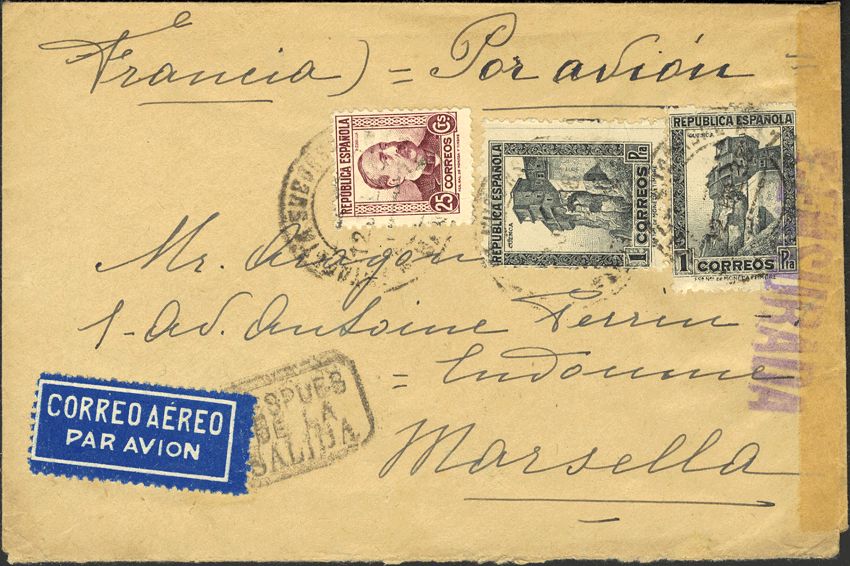 Francia) = Por avión
REPUBLICA ESPAÑOLA
25 Cts
CORREOS
REPUBLICA ESPAÑOLA
CUENCA
1 Pta
CORREOS
REPUBLICA ESPAÑOLA
CUENCA
1 CORREOS Pta
Mr. Aragon
1-Av. Antoine Perrin-
= Endoume
Marsella
CORREO AÉREO
PAR AVION
DESPUES
DE LA
SALIDA
CENSURADA